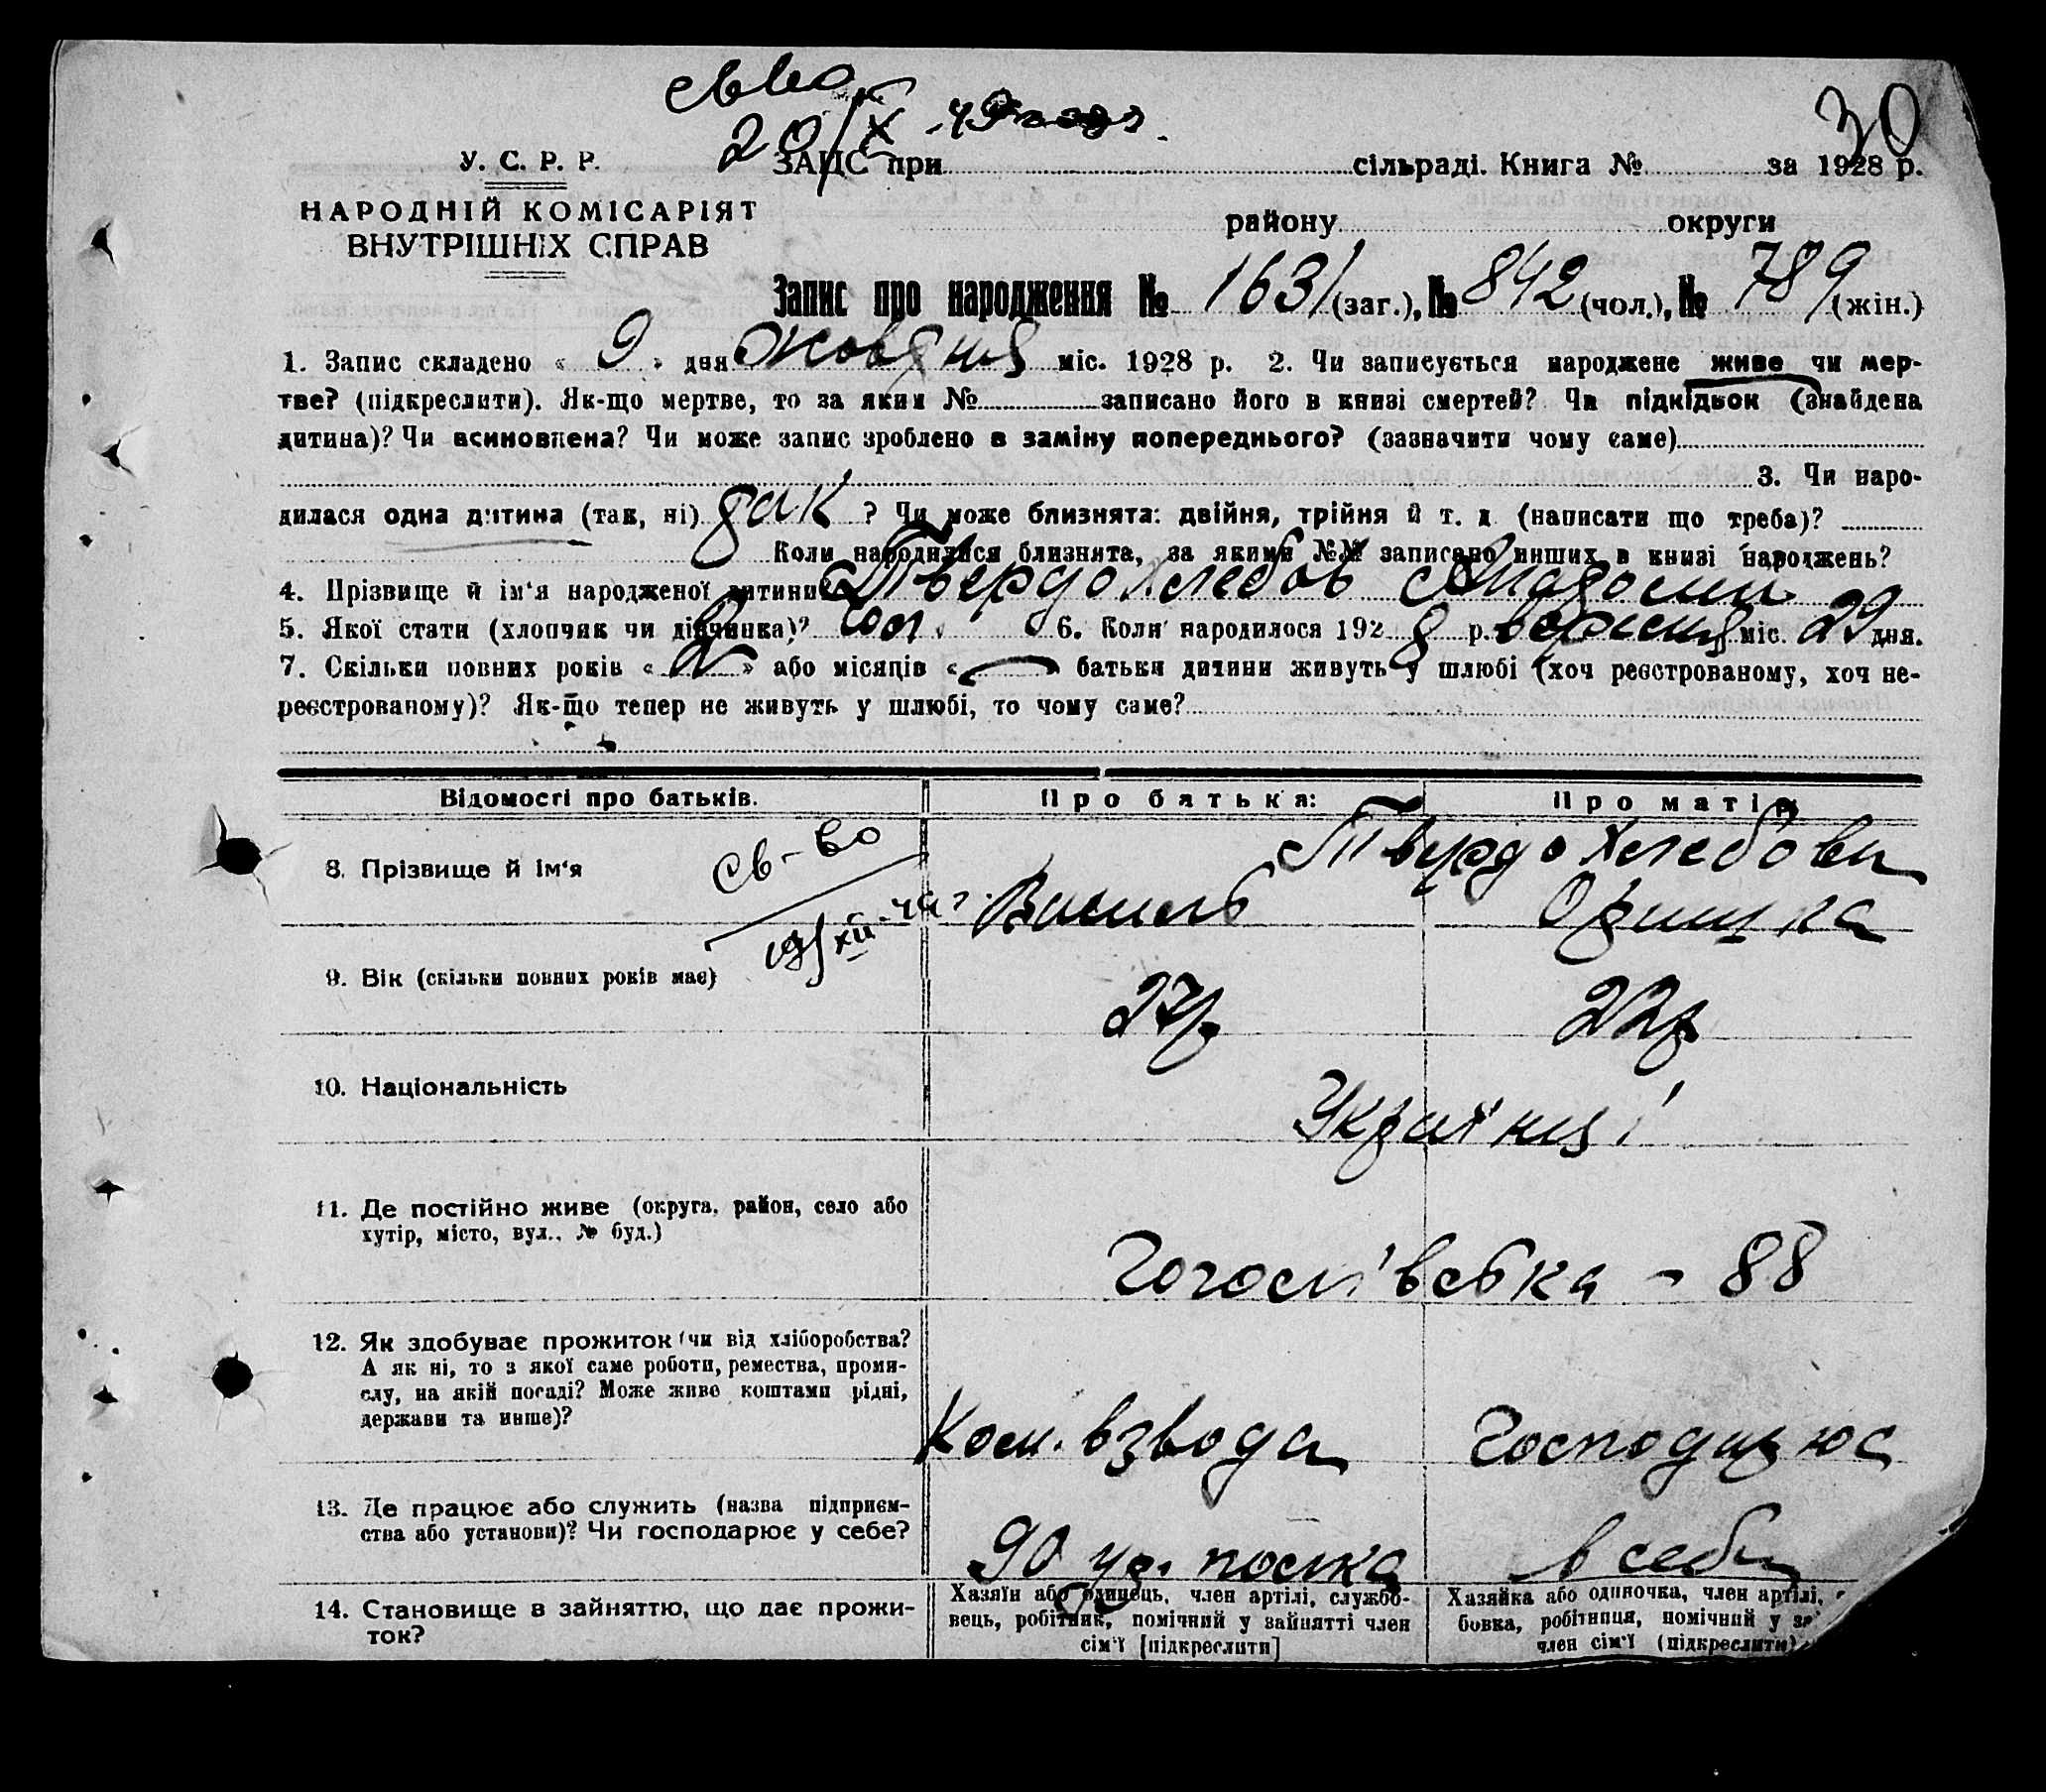 св-во
20/X -49 года
30
У. С. Р. Р.
ЗАЦС при сільраді. Книга № за 1928 р.
НАРОДНІЙ КОМІСАРІЯТ
ВНУТРІШНІХ СПРАВ
району округи
Запис про народження № 1631 (заг.), № 842 (чол.), № 789 (жін.)
1. Запис складено « 9 » дня жовтня міс. 1928 р. 2. Чи записується народжене живе чи мер-
тве? (підкреслити). Як-що мертве, то за яким № записано його в книзі смертей? Чи підкідьок (знайдена
дитина)? Чи всиновлена? Чи може запис зроблено в заміну попереднього? (зазначити чому саме)
3. Чи наро-
дилася одна дитина (так, ні) так ? Чи може близнята: двійня, трійня й т. д. (написати що треба)?
Коли народилися близнята, за якими №№ записано инших в книзі народжень?
4. Прізвище й ім'я народженої дитини? Твердохлебов
5. Якої стати (хлопчик чи дівчинка)? чол. 6. Коли народилося 1928 р. вересня міс. 29 дня.
7. Скільки повних років « 2 » або місяців « — » батьки дитини живуть у шлюбі (хоч реєстрованому, хоч не-
реєстрованому)? Як-що тепер не живуть у шлюбі, то чому саме?
Відомості про батьків. Про батька: Про матір
8. Прізвище й ім'я Твердохлебови
Св-во Василь Оришка
XII
9. Вік (скільки повних років має) 27р 22р
10. Національність Українці
11. Де постійно живе (округа, район, село або
хутір, місто, вул., № буд.) Гоголівська - 88
12. Як здобуває прожиток (чи від хліборобства?
А як ні, то з якої саме роботи, ремества, проми-
слу, на якій посаді? Може живе коштами рідні,
держави та инше)? Ком. взвода Господарює
13. Де працює або служить (назва підприєм-
ства або установи)? Чи господарює у себе? 90 полка в себе
14. Становище в зайняттю, що дає прожи-
ток?
Хазяїн або одинець, член артілі, службо-
вець, робітник, помічний у зайнятті член
сім'ї [підкреслити]
Хазяйка або одиночка, член артілі,
бовка, робітниця, помічний у
член сім'ї (підкреслити)